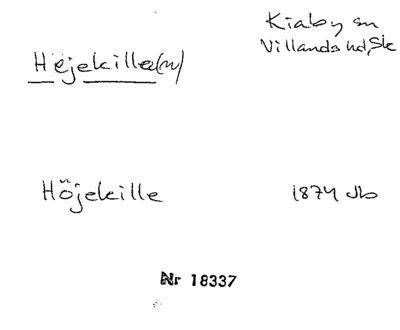 Kiaby sn
Villands hd, Sk
Höjekilla(n)
Höjekille
1874 db
Nr 18337